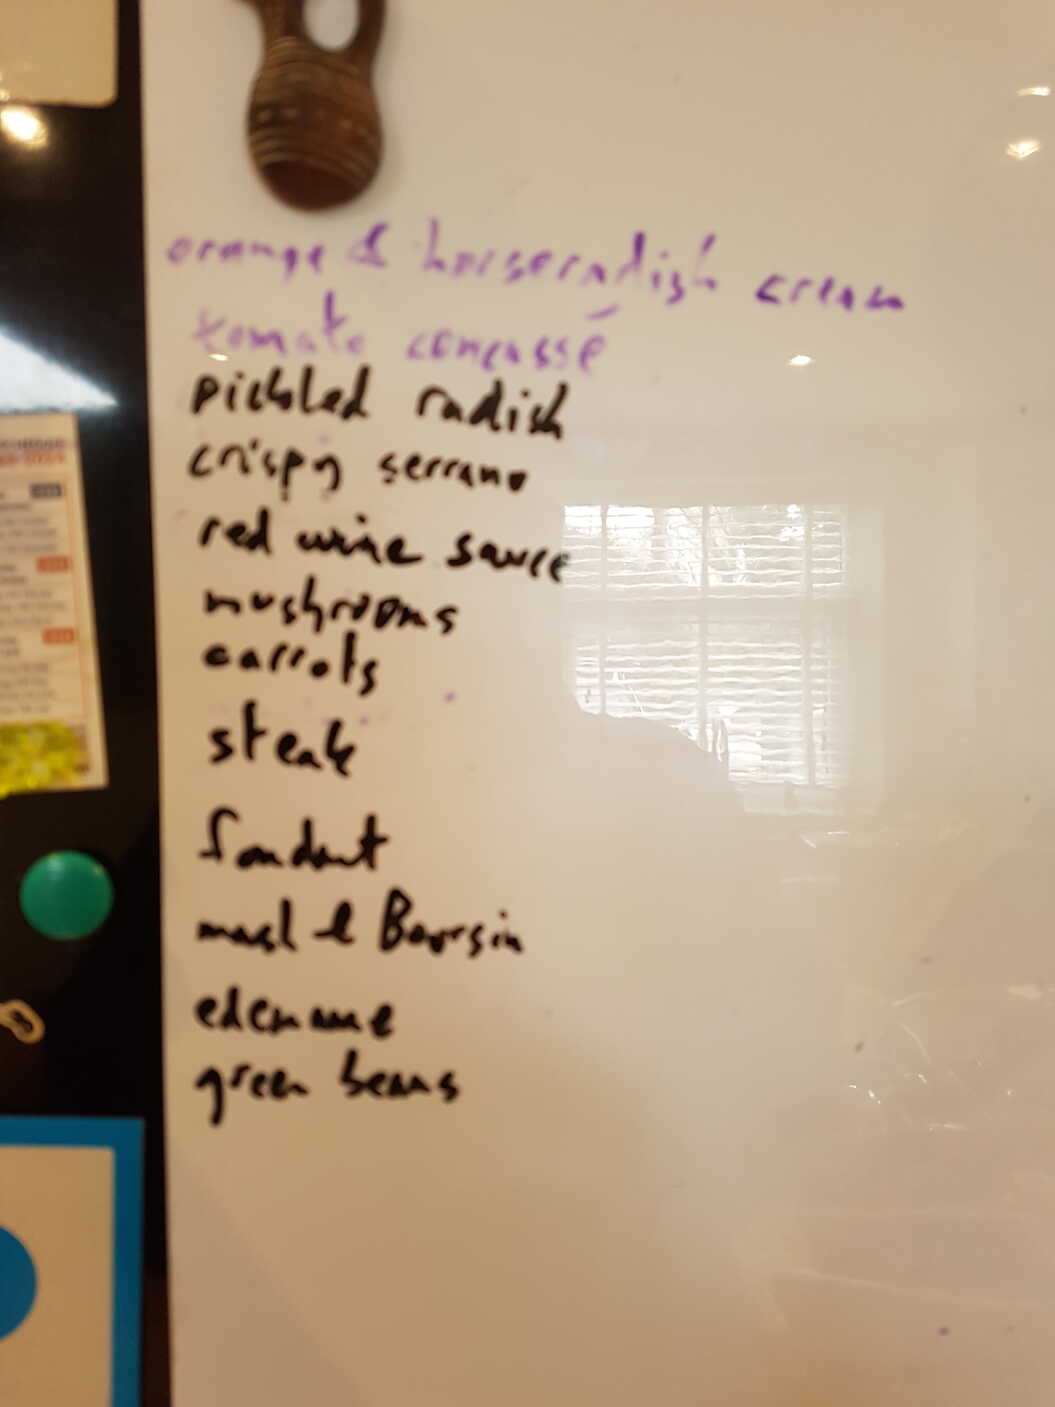 orange & horseradish cream
tomato concassé
pickled radish
crispy serrano
red wine sauce
mushrooms
carrots
steak
fondant
mash & Boursin
edemame
green beans